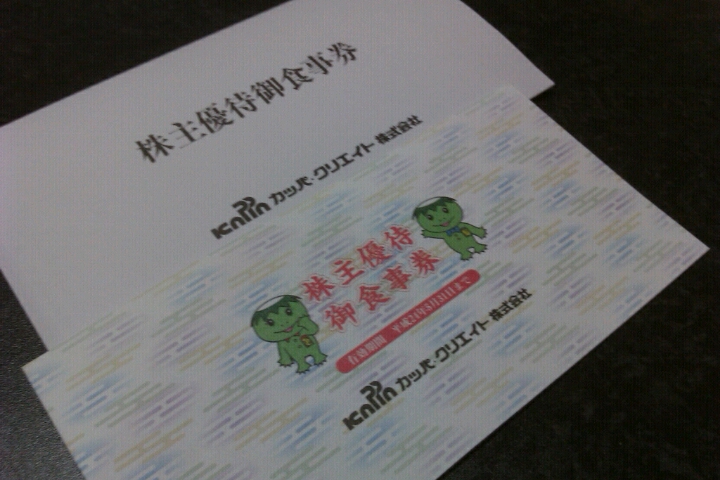 株主優待御食事券
KAPPA カッパ・クリエイト 株式会社
株主優待
御食事券
有効期間 平成24年5月31日まで
KAPPA カッパ・クリエイト 株式会社